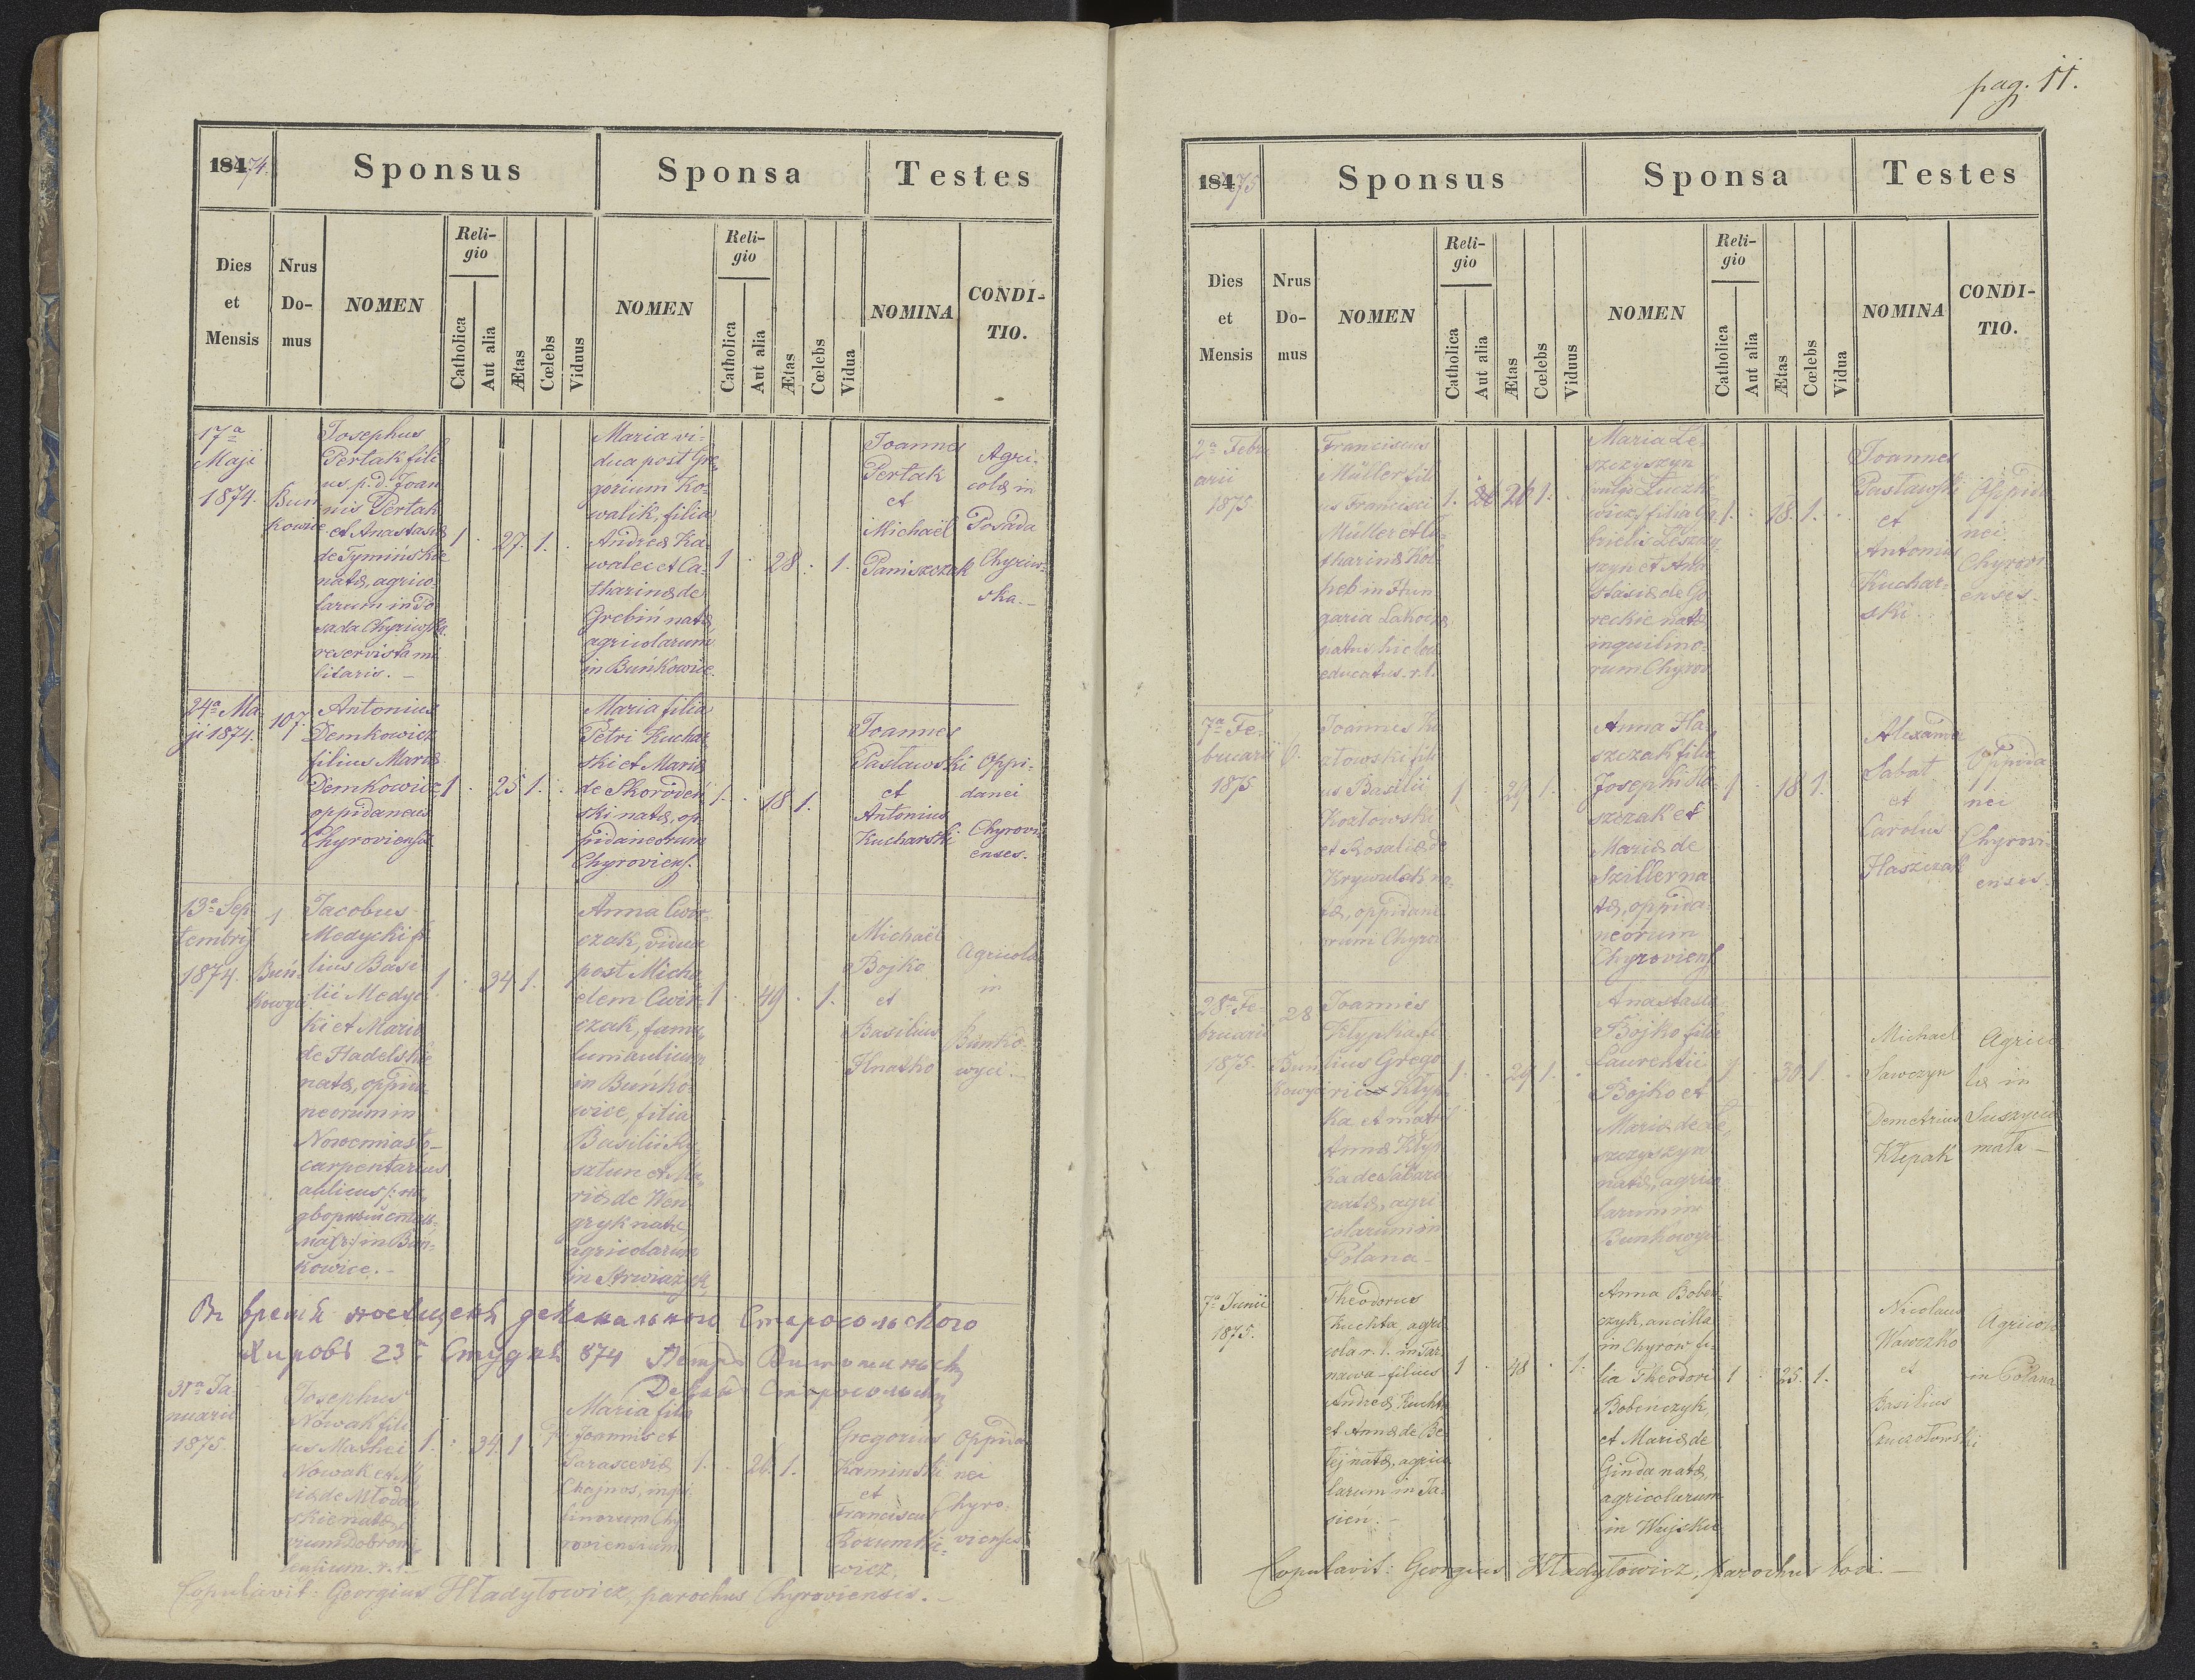 pag. 11.
1874.
Sponsus
Sponsa
Testes
Dies
et
Mensis
Nrus
Do-
mus
NOMEN
Reli-
gio
Catholica
Aut alia
Ætas
Cœlebs
Viduus
NOMEN
Reli-
gio
Catholica
Aut alia
Ætas
Cœlebs
Vidua
NOMINA
CONDI-
TIO.
17a
Maji
1874.
Bun
kowice
Josephus
Pertak fili
us p. d. Joan
nis Pertak
et Anastasiæ
de Tymińskie
natæ, agrico-
larum in Po
sada Chyriwska
reservista mi
litaris. –
1 . 27. 1. .
Maria vi-
dua post Gre-
gorium Ko-
walik, filia
Andreæ Ka-
walec et Ca-
tharinæ de
Grebiń natæ
agricolarum
in Buńkowice.
1 . 28 . 1.
Joannes
Pertak
et
Michaël
Paniszczak
Agri-
colæ in
Posada
Chyriw-
ska. –
24a Ma
ji 1874.
107.
Antonius
Demkowicz
filius Mariæ
Demkowicz
oppidaneus
Chyroviensis
1 . 25 1. .
Maria filia
Petri Kuchar
ski et Mariæ
de Skoroden
ski natæ, op
pidaneorum
Chyroviens.
1. . 18 1.
Joannes
Pasławski
et
Antonius
Kucharski
Oppi-
danei
Chyrovi-
enses.
13a Sep
tembris
1874.
1
Buń-
kowyci
Jacobus
Medycki fi
lius Basi
lii Medyc
ki et Mariæ
de Hadelskie
natæ, oppida
neorum in
Nowemiasto –
carpentarius
aulicus /: на
дворный столь
на(r:/ in Bun-
kowice. –
1 . 34 1.
Anna Cwir-
czak, vidua
post Micha
elem Cwir-
czak, famu
lum aulicum
in Buńko-
wice, filia
Basilii Ky
sztun et Ma
riæ de Wen
gryk natæ,
agricolarum
in Strwiążyk
1 . 49 . 1.
Michaël
Bojko
et
Basilius
Hnatko
Agricolæ
in
Buńko-
wyci –
Старосольского
Хировѣ 23 874 Петръ
31a Ja
nuarii
1875.
Josephus
Nowak fili
us Mathei
Nowak et Ma
riæ de Młodow
skie natæ
1. . 34. 1
Maria filia
Joannis et
Parasceviæ
Chajnos, inqui
linorum Chy
roviensium
1. . 26. 1.
Gregorius
Kaminski
et
Franciscus
Rozumkie-
wicz
Oppida
nei
Chyro-
vienses
Copulavit: Georgius Hładyłowicz, parochus Chyroviensis. –
1875
Sponsus
Sponsa
Testes
Dies
et
Mensis
Nrus
Do-
mus
NOMEN
Reli-
gio
Catholica
Aut alia
Ætas
Cœlebs
Viduus
NOMEN
Reli-
gio
Catholica
Aut alia
Ætas
Cœlebs
Vidua
NOMINA
CONDI-
TIO.
2a Febru
arii
1875
Franciscus
Müller fili
us Francisci
Müller et Ca
tharinæ Kol
heb in Hun
garia
natus hic loci
educatus. r. l.
1. 26 1.
Maria Le-
szczyszyn
filia Ga
brielis Leszczy
szyn et Ana
stasiæ de Go
reckie natæ
inquilino-
rum Chyrov
1. . 18. 1. .
Joannes
Pasławski
et
Antonius
Kuchar-
ski
Oppida
nei
Chyrovi
enses –
7a Fe-
bruarii
1875
6.
Joannes Ko
złowski fili
us Basilii
Kozłowski
et Rosaliæ de
Krywulak na-
tæ, oppidane
orum Chyrov
1 . 29 1.
Anna Ha-
szczak filia
Josephi Ha-
szczak et
Mariæ de
Sziller na
tæ, oppida-
neorum
Chyroviens
1 . 18 1.
Alexander
Sabat
et
Carolus
Haszczak
Oppida
nei
Chyrovi
enses.
28a Fe-
bruarii
1875.
28
Bun
kowyci
Joannes
Kłypka fi
lius Grego
rii Kłyp
ka et
Annæ Kłyp
ka de
natæ, agri
colarum in
Polana –
1. . 29 1. .
Anastasia
Bojko filia
Laurentii
Bojko et
Mariæ de Le-
szczyszyn
natæ, agrico
larum in
Bunkowyci
1 . 30 1.
Michael
Sawczyn
Demetrius
Klepak
Agrico
læ in
Suszyca
mała –
7a Junii
1875.
Theodorus
Kuchta, agri
cola r. l. in Tar-
nawa – filius
Andreæ Kuchta
et Annæ de Be
lej natæ, agrico
larum in Ja-
sień. –
1 . 48 . 1.
Anna Boben-
czyk, ancilla
in Chyrow fi-
lia Theodori
Bobenczyk,
et Mariæ de
Ginda natæ,
agricolarum
in Wujskie
1 . 25. 1.
Nicolaus
Wawczko
et
Basilius
Agricolæ
in Polana
Copulavit: Georgius Hładyłowicz, parochus loci. –